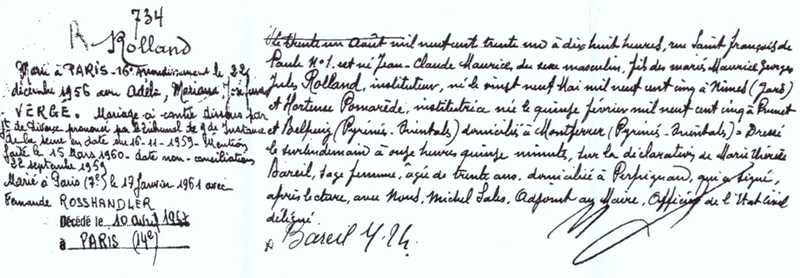 734
R Rolland
Marié à PARIS-16e Arrondissement le 22
décembre 1956 avec Adèle, Mariana, Joséphine
VERGE. Mariage ci-contre dissous par
jt de divorce prononcé par tribunal de gde instance
de la Seine en date du 16-11-1959 - Mention
faite le 15 Mars 1960 - date non-conciliation
22 septembre 1959
Marié à Paris (7e) le 17 Janvier 1961 avec
Fernande ROSSHANDLER
Décédé le 10 avril 1967
à PARIS (14e)
Le trente un Août mil neuf cent trente un à dix huit heures, rue Saint François de
Paule No 1. est né Jean-Claude Maurice, du sexe masculin, fils des mariés Maurice Georges
Jules Rolland, instituteur, né le vingt neuf Mai mil neuf cent cinq à Nimes (Gard)
et Hortense Pomarède, institutrice née le quinze février mil neuf cent cinq à Prunet
et Belpuig (Pyrénées-Orientales) domiciliés à Montferrer (Pyrénées-Orientales) - Dressé
le surlendemain à onze heures quinze minutes, sur la déclaration de Marie Thérèse
Bareil, sage femme, agée de trente ans, domiciliée à Perpignan, qui a signé,
après lecture, avec Nous, Michel Sales, Adjoint au Maire, Officier de l'Etat Civil
délégué.
Bareil M. Th.